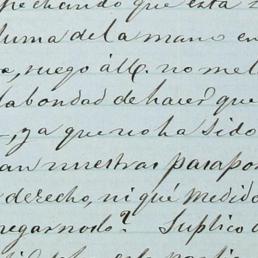 echando que está
luma de la mano en
ruego á V. no me l
la bondad de hacer que
ya que no ha sido
an nuestras pasapor
derecho, ni qué medid
negarnoslo? Suplico